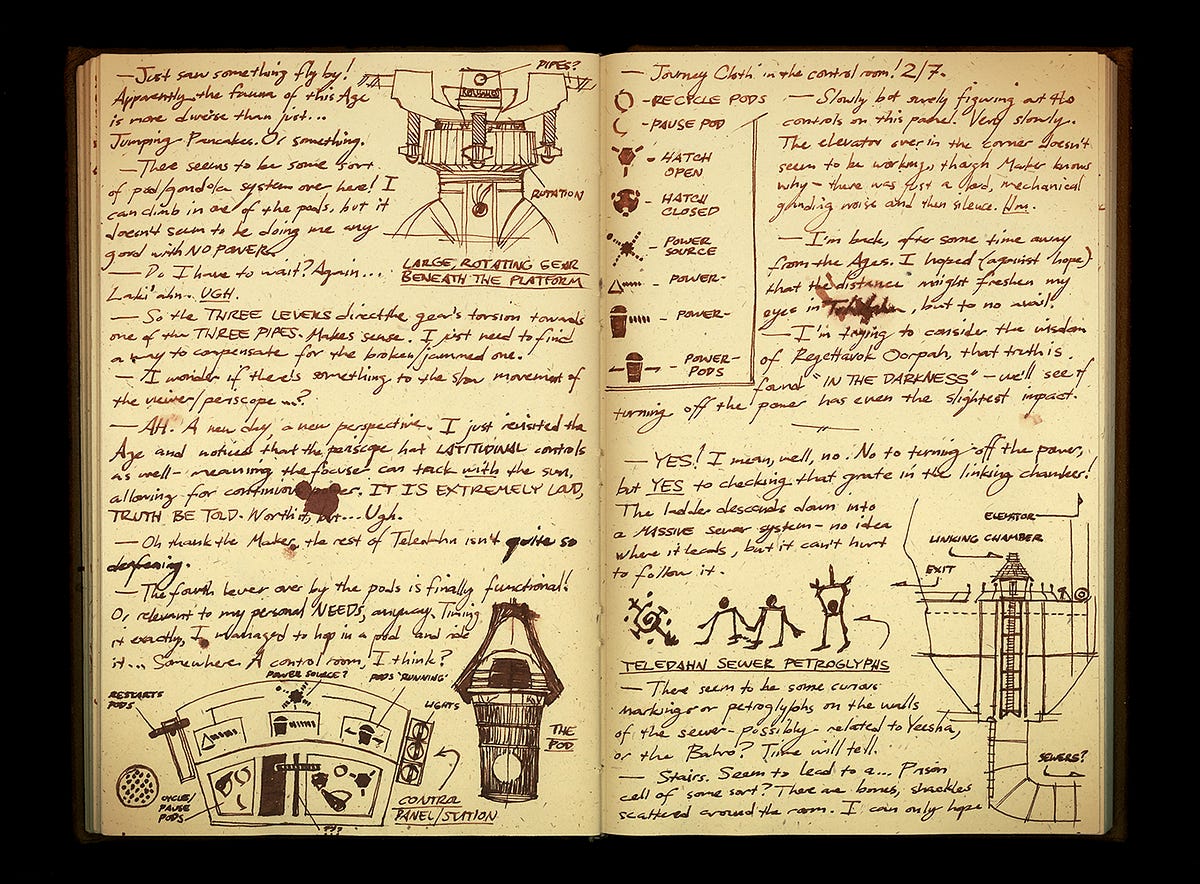 — Just saw something fly by!
Apparently the fauna of this Age
is more diverse than just...
Jumping Pancakes. Or something.
— There seems to be some sort
of pod/gondola system over here! I
can climb in one of the pods, but it
doesn't seem to be doing me any
good with NO POWER.
— Do I have to wait? Again...
Laki'ahn. UGH.
PIPES?
ROTATION
LARGE, ROTATING GEAR
BENEATH THE PLATFORM
— So the THREE LEVERS direct the gear's torsion towards
one of the THREE PIPES. Makes sense. I just need to find
a way to compensate for the broken/jammed one.
— I wonder if there's something to the slow movement of
the viewer/periscope...?
— AH. A new day, a new perspective. I just revisited the
Age and noticed that the periscope has LATITUDINAL controls
as well - meaning the focuser can track with the sun,
allowing for continuous IT IS EXTREMELY LOUD,
TRUTH BE TOLD. Worth it, but... Ugh.
— Oh thank the Maker, the rest of Teledahn isn't quite so
deafening.
— The fourth lever over by the pods is finally functional!
Or relevant to my personal NEEDS, anyway. Timing
it exactly, I managed to hop in a pod and ride
it... Somewhere. A control room, I think?
RESTARTS
PODS
POWER SOURCE?
PODS 'RUNNING'
LIGHTS
CYCLE/
PAUSE
PODS
???
CONTROL
PANEL/STATION
THE
POD
— Journey Cloth in the control room! 2/7.
- RECYCLE PODS
- PAUSE POD
- HATCH
OPEN
- HATCH
CLOSED
- POWER
SOURCE
- POWER-
- POWER-
- POWER-
PODS
— Slowly but surely figuring out the
controls on this panel. Very slowly.
The elevator over in the corner doesn't
seem to be working, though Maker knows
why - there was just a loud, mechanical
grinding noise and then silence. Hm.
— I'm back, after some time away
from the Ages. I hoped (against hope)
that the distance might freshen my
eyes in , but to no avail.
— I'm trying to consider the wisdom
of Regeltavok Oorpah, that truth is
found "IN THE DARKNESS" - we'll see if
turning off the power has even the slightest impact.
— YES! I mean, well, no. No to turning off the power,
but YES to checking that grate in the linking chamber!
The ladder descends down into
a MASSIVE sewer system - no idea
where it leads, but it can't hurt
to follow it.
ELEVATOR
LINKING CHAMBER
EXIT
SEWERS?
TELEDAHN SEWER PETROGLYPHS
— There seem to be some curious
markings or petroglyphs on the walls
of the sewer - possibly related to Yeesha,
or the Bahro? Time will tell.
— Stairs. Seem to lead to a... Prison
cell of some sort? There are bones, shackles
scattered around the room. I can only hope